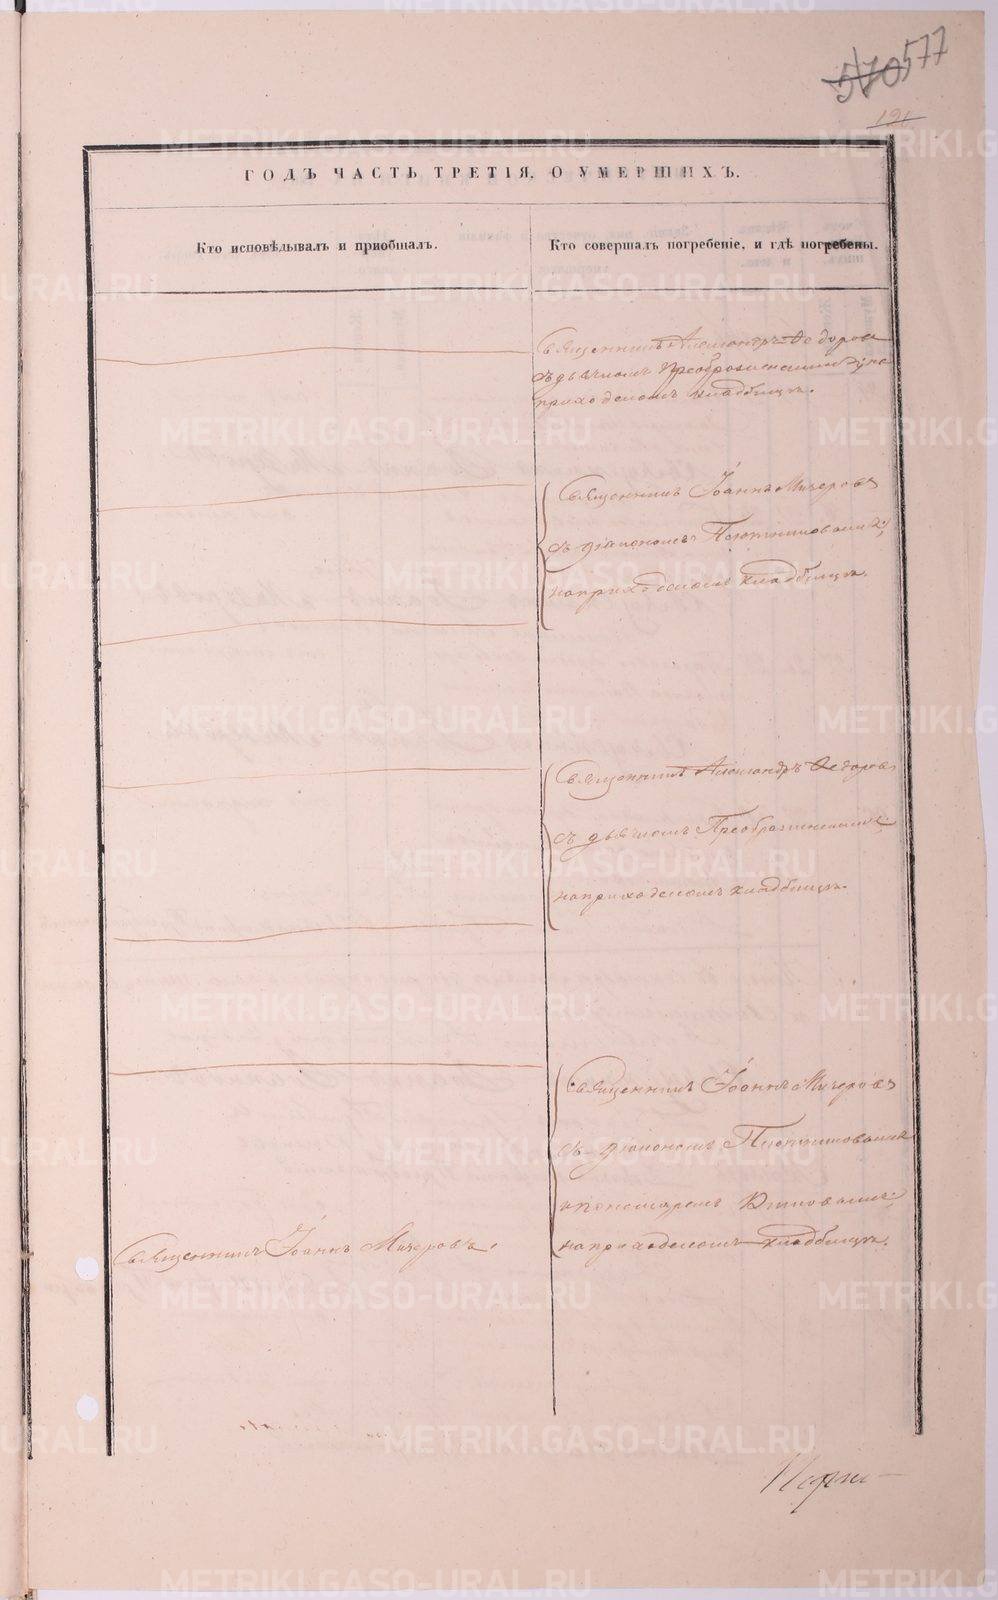 577
570
191
ГОДЪ ЧАСТЬ ТРЕТІЯ, О УМЕРШИХЪ.
Кто исповѣдывалъ и пріобщалъ.
Кто совершалъ погребеніе, и гдѣ погребены.
Священникъ Александръ Ѳедоровъ
съ дьячкомъ Преображенскимъ на
приходскомъ кладбищѣ.
Священникъ Іоаннъ Мичеровъ
съ діакономъ
на приходскомъ кладбищѣ.
Священникъ Александръ Ѳедоровъ
съ дьячкомъ Преображенскимъ
на приходскомъ кладбищѣ.
Священникъ Іоаннъ Мичеровъ
съ діакономъ
и пономаремъ
на приходскомъ кладбищѣ.
Священникъ Іоаннъ Мичеровъ.
METRIKI.GASO-URAL.RU